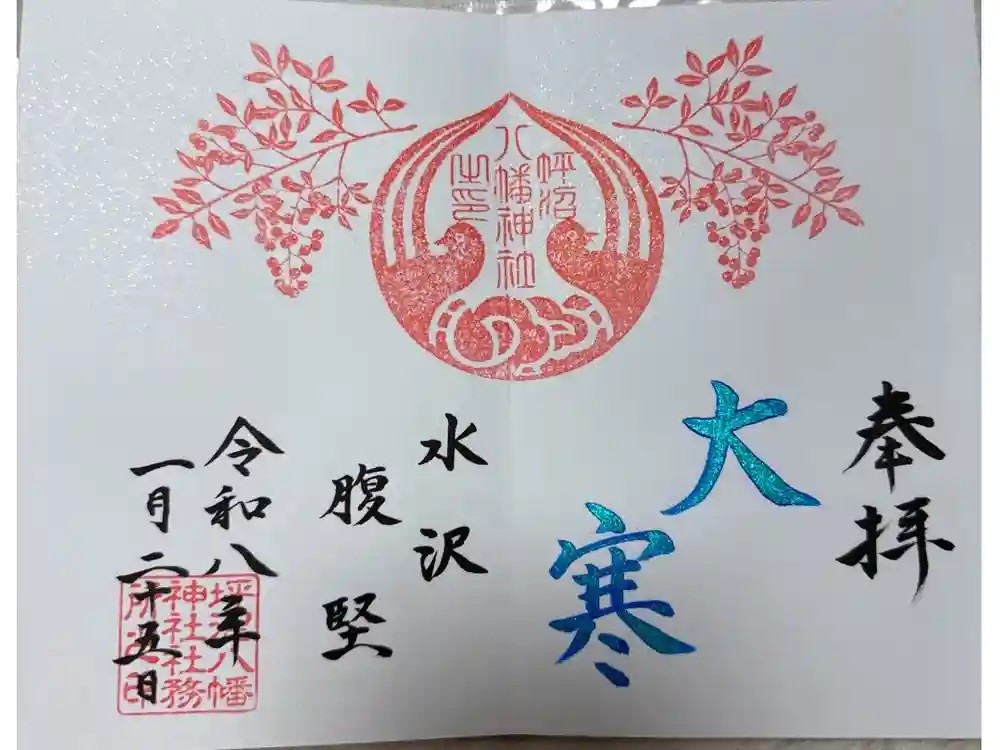 坪沼
八幡神社
之印
奉拝
大寒
水沢
腹堅
令和八年
一月二十五日
坪沼八幡
神社社務
所之印